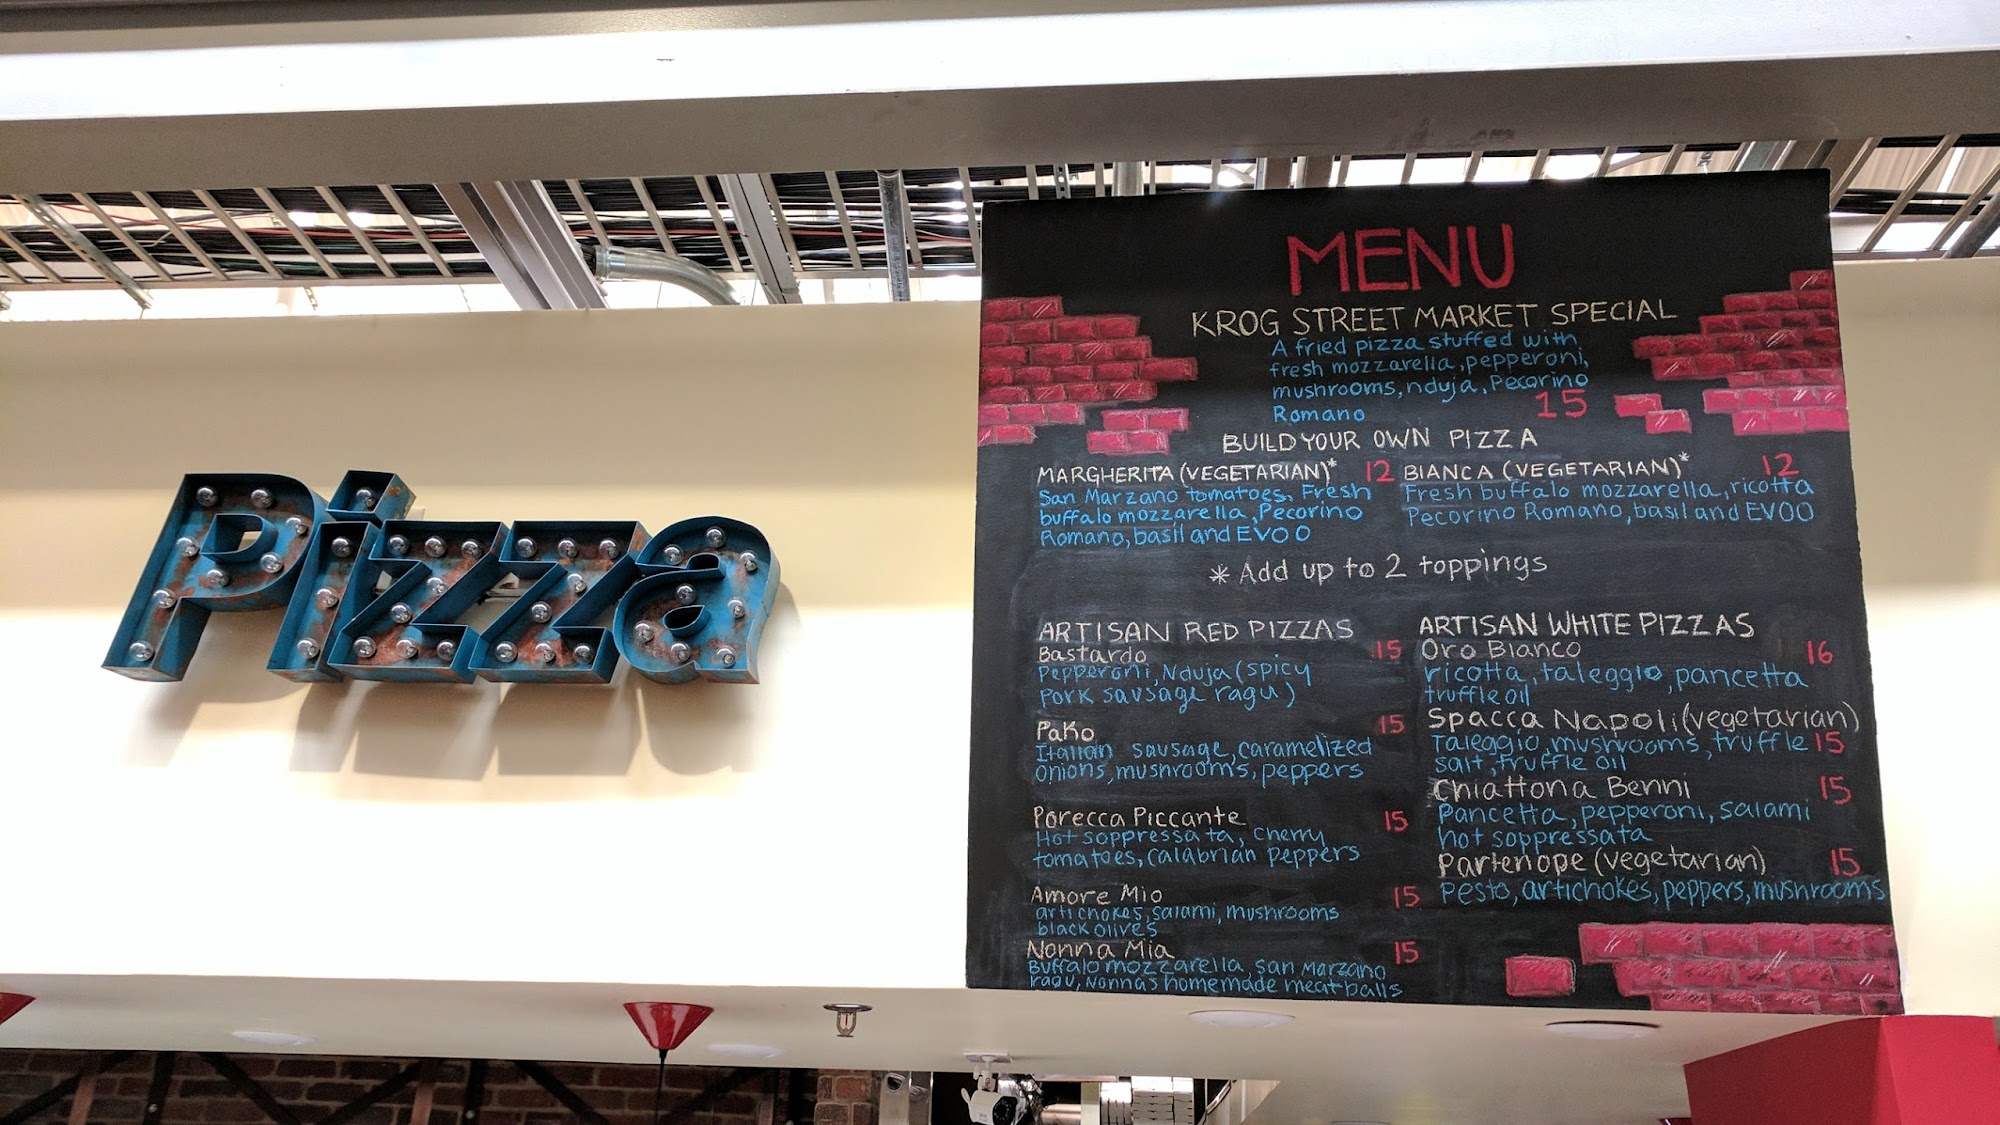 Pizza
MENU
KROG STREET MARKET SPECIAL
A fried pizza stuffed with
fresh mozzarella, pepperoni,
mushrooms, nduja, Pecorino
Romano 15
BUILD YOUR OWN PIZZA
MARGHERITA (VEGETARIAN)* 12
San Marzano tomatoes, Fresh
buffalo mozzarella, Pecorino
Romano, basil and EVOO
BIANCA (VEGETARIAN)* 12
Fresh buffalo mozzarella, ricotta
Pecorino Romano, basil and EVOO
* Add up to 2 toppings
ARTISAN RED PIZZAS
Bastardo 15
Pepperoni, Nduja (spicy
pork sausage ragu)
Pako 15
Italian sausage, caramelized
onions, mushrooms, peppers
Porecca Piccante 15
Hot soppressata, cherry
tomatoes, calabrian peppers
Amore Mio 15
artichokes, salami, mushrooms
black olives
Nonna Mia 15
Buffalo mozzarella, san marzano
ragu, Nonna's homemade meatballs
ARTISAN WHITE PIZZAS
Oro Bianco 16
ricotta, taleggio, pancetta
truffle oil
Spacca Napoli (vegetarian)
Taleggio, mushrooms, truffle 15
salt, truffle oil
Chiattona Benni 15
Pancetta, pepperoni, salami
hot soppressata
Partenope (vegetarian) 15
Pesto, artichokes, peppers, mushrooms